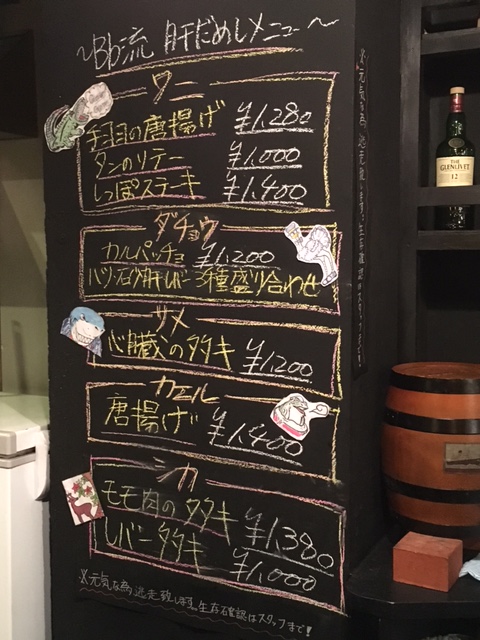 〜Bb流 肝だめしメニュー〜
ワニ
手羽の唐揚げ ¥1,280
タンのソテー ¥1,000
しっぽステーキ ¥1,400
ダチョウ
カルパッチョ ¥1,200
ハツ・砂肝・レバー 3種盛り合わせ
サメ
心臓のタタキ ¥1,200
カエル
唐揚げ ¥1,400
シカ
モモ肉のタタキ ¥1,380
レバータタキ ¥1,000
※元気な為、逃走致します。生存確認はスタッフまで!!
※元気な為、逃走致します。生存確認はスタッフまで!!
THE
GLENLIVET
12